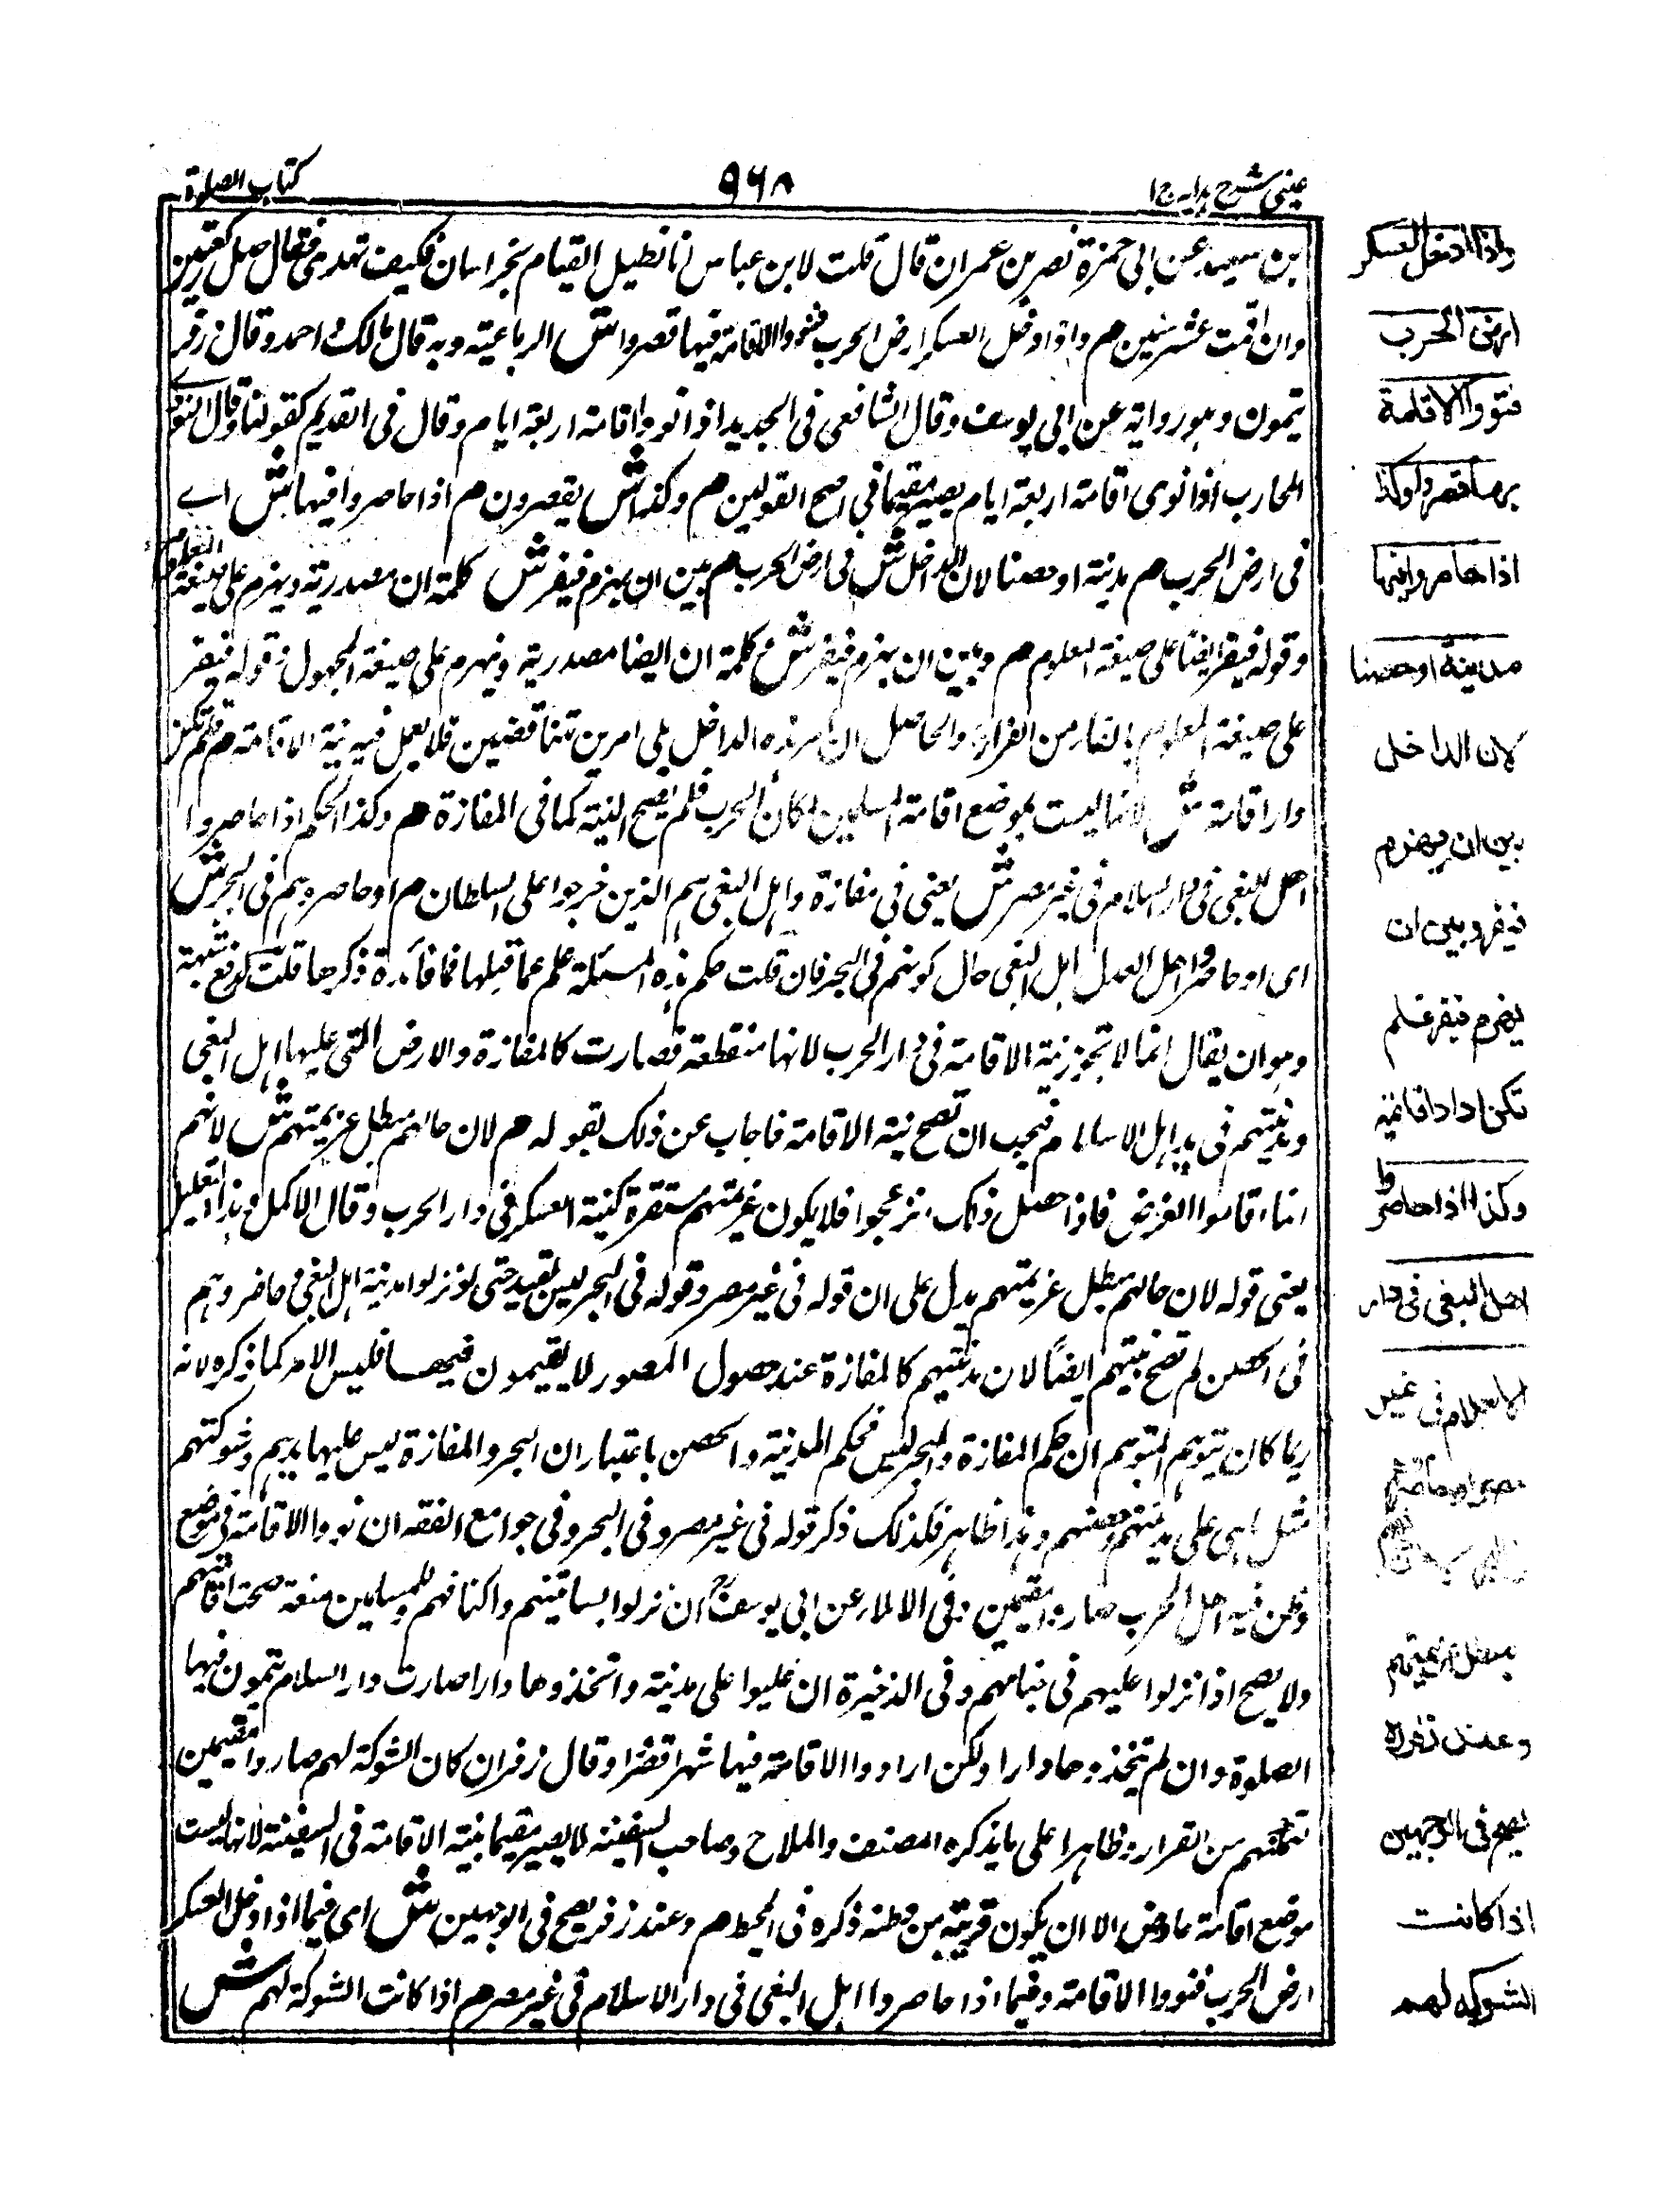 عینی شرح ہدایہ ج۱
۹۶۸
کتاب الصلوة
بن سعيد عن ابى حمزة نصر بن عمران قال قلت لابن عباس انا نطيل القيام بخراسان فكيف ترى فقال صل ركعتين
وان اقمت عشر سنين هم واذا دخل العسكر ارض الحرب فنووا الاقامة فيها قصروا ش الرباعية وبه قال مالك واحمد وقال زفر
يتمون وهو رواية عن ابى يوسف وقال الشافعى فى الجديد اذا نووا اقامة اربعة ايام وقال فى القديم كقولنا وقال النووى
المحارب اذا نوى اقامة اربعة ايام يصير مقيما فى اصح القولين هم وكذا ش يقصرون هم اذا حاصروا فيها ش اے
فى ارض الحرب هم مدينة او حصنا لان الداخل ش فى ارض الحرب هم بين ان يهزم فيفر ش كلمة ان مصدرية ويهزم على صيغة المعلوم
وقوله فيقر ايضا على صيغة المعلوم هم وبين ان يهزم فيفر ش كلمة ان ايضا مصدرية ويهزم على صيغة المجهول وقوله فيفر
على صيغة المعلوم بالفاء من الفرار والحاصل ان امر هذه الداخل بلى امرين متناقضين فلا يعمل فيه نية الاقامة هم فلم تكن
دار اقامة ش لانها ليست بموضع اقامة المسلمين لكان الحرب فلم يصح النية كما فى المفازة هم وكذا الحكم اذا حاصروا
اهل البغى فى دار السلام فى غير مصر ش يعنى فى مفازة واهل البغى هم الذين خرجوا على السلطان هم او حاصروهم فى البحر ش
اى او حاصروا اهل العدل اهل البغى حال كونهم فى البحر فان قلت حكم هذه المسئلة علم عما قبلها فما فائدة ذكرها قلت لدفع شبهة
وهو ان يقال انما لا تجوز نية الاقامة فى دار الحرب لانها منقطعة فصارت كالمفازة والارض التى عليها اهل البغى
ومدينتهم فى يد اهل الاسلام فيجب ان تصح نية الاقامة فاجاب عن ذلك بقوله هم لان حالهم مبطل عزيمتهم ش لانهم
انما اقاموا الغرض فاذا حصل ذلك انزعجوا فلا يكون عزيمتهم مستقرة كنية العسكر فى دار الحرب وقال الاكمل وهذا التعليل
يعنى قوله لان حالهم مبطل عزيمتهم يدل على ان قوله فى غير مصر وقوله فى البحر ليس بقيد حتى لو نزلوا مدينة اهل البغى وحاصروهم
فى الحصن لم تصح نيتهم ايضاً لان مدينتهم كالمفازة عند حصول المقصود لا يقيمون فيها فليس الامر كما ذكره لانه
ربما كان يتوهم المتوهم ان حكم المفازة والبحر ليس كحكم المدينة والحصن باعتبار ان البحر والمفازة ليس عليها يدهم وشوكتهم
مثل ما هى على مدينتهم وحصنهم وهذا ظاهر فكذلك ذكر قوله فى غير مصر وفى البحر وفى جوامع الفقه ان نووا الاقامة فى موضع
وطن فيه اهل الحرب صاروا مقيمين وفى الاملاء عن ابى يوسفؒ ان نزلوا بساتينهم واكنافهم وللمسلمين منعة صحت اقامتهم
ولا يصح اذا نزلوا عليهم فى خيامهم وفى الذخيرة ان غلبوا على مدينة واتخذوها دارا صارت دار السلام يتمون فيها
الصلوة وان لم يتخذوها دارا ولكن ارادوا الاقامة فيها شهرا قصروا وقال زفر ان كان الشوكة لهم صاروا مقيمين
لتمكنهم من القرار ظاهرا على ما يذكره المصنف والملاح وصاحب السفينة لا يصير مقيما بنية الاقامة فى السفينة لانها ليست
موضع اقامة الا ان يكون قريته من وطنه ذكره فى المحيط هم وعند زفر يصح فى الوجهين ش اى فيما اذا دخل العسكر
ارض الحرب فنووا الاقامة وفيما اذا حاصروا اهل البغى فى دار الاسلام فى غير مصر هم اذا كانت الشوكة لهم ش
واذا ادخل العسكر
ارض الحرب
فنووا الاقامة
بها قصروا وكذا
اذا حاصروا فيها
مدينة او حصنا
لان الداخل
بين ان يهزم
فيقر وبين ان
يهزم فيفر فلم
تكن دار اقامة
وكذا اذا حاصروا
اهل البغى فى دار
الاسلام فى غير
مصر او حاصروهم
مبطل عزيمتهم
وعند زفر
يصح فى الوجهين
اذا كانت
الشوكة لهم